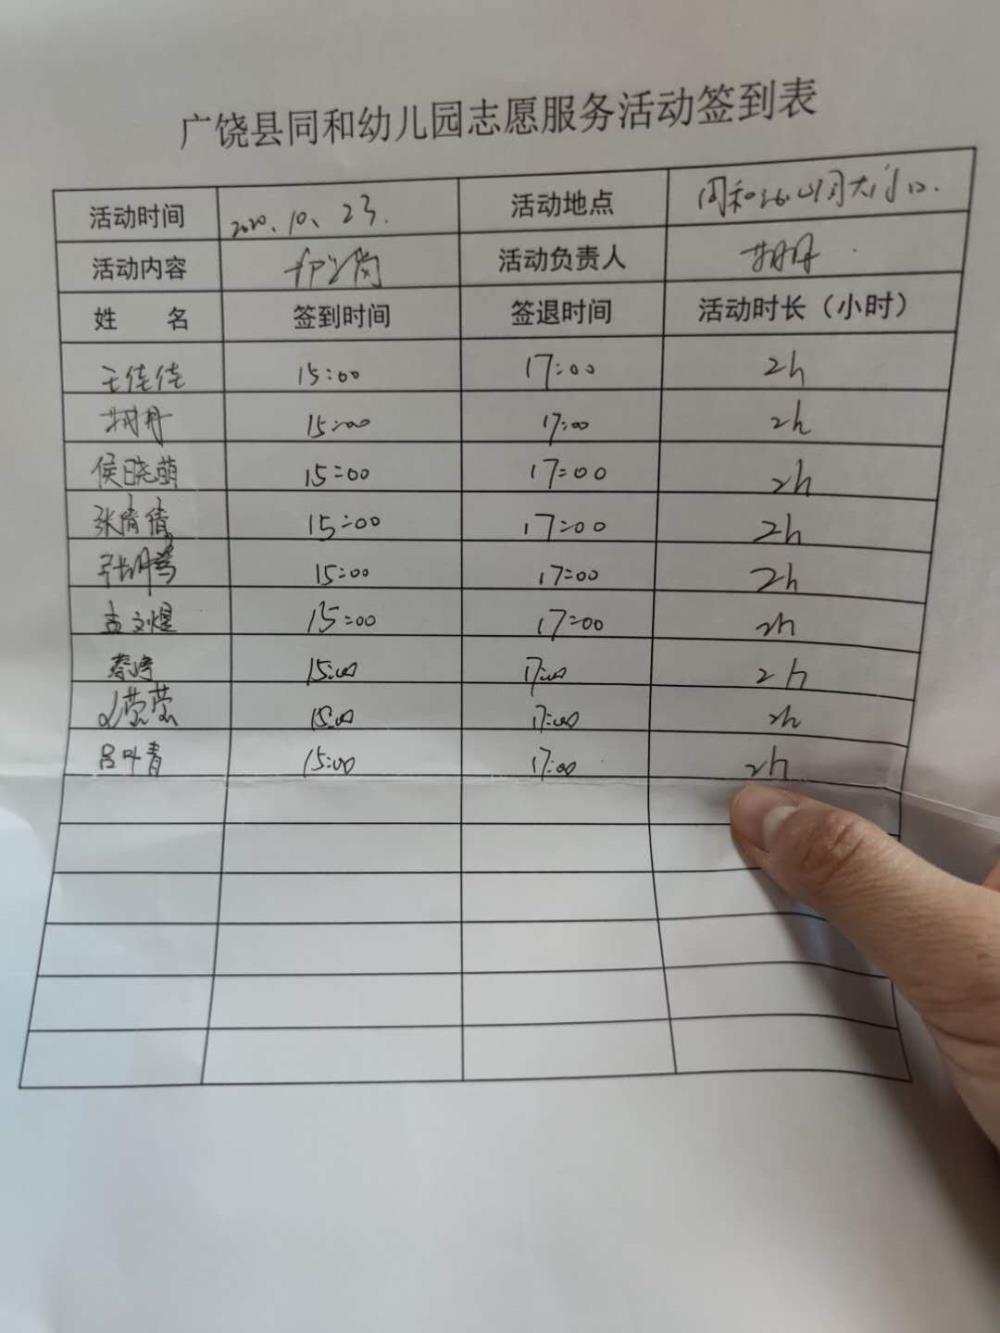 广饶县同和幼儿园志愿服务活动签到表
活动时间 2020.10、23. 活动地点 同和幼儿园大门口.
活动内容 护学岗 活动负责人 胡丹
姓 名 签到时间 签退时间 活动时长（小时）
王佳佳 15:00 17:00 2h
胡丹 15:00 17:00 2h
侯晓萌 15:00 17:00 2h
张倩倩 15:00 17:00 2h
张鹏 15:00 17:00 2h
孟文煜 15:00 17:00 2h
秦婷 15:00 17:00 2h
莹莹 15:00 17:00 2h
吕叶青 15:00 17:00 2h